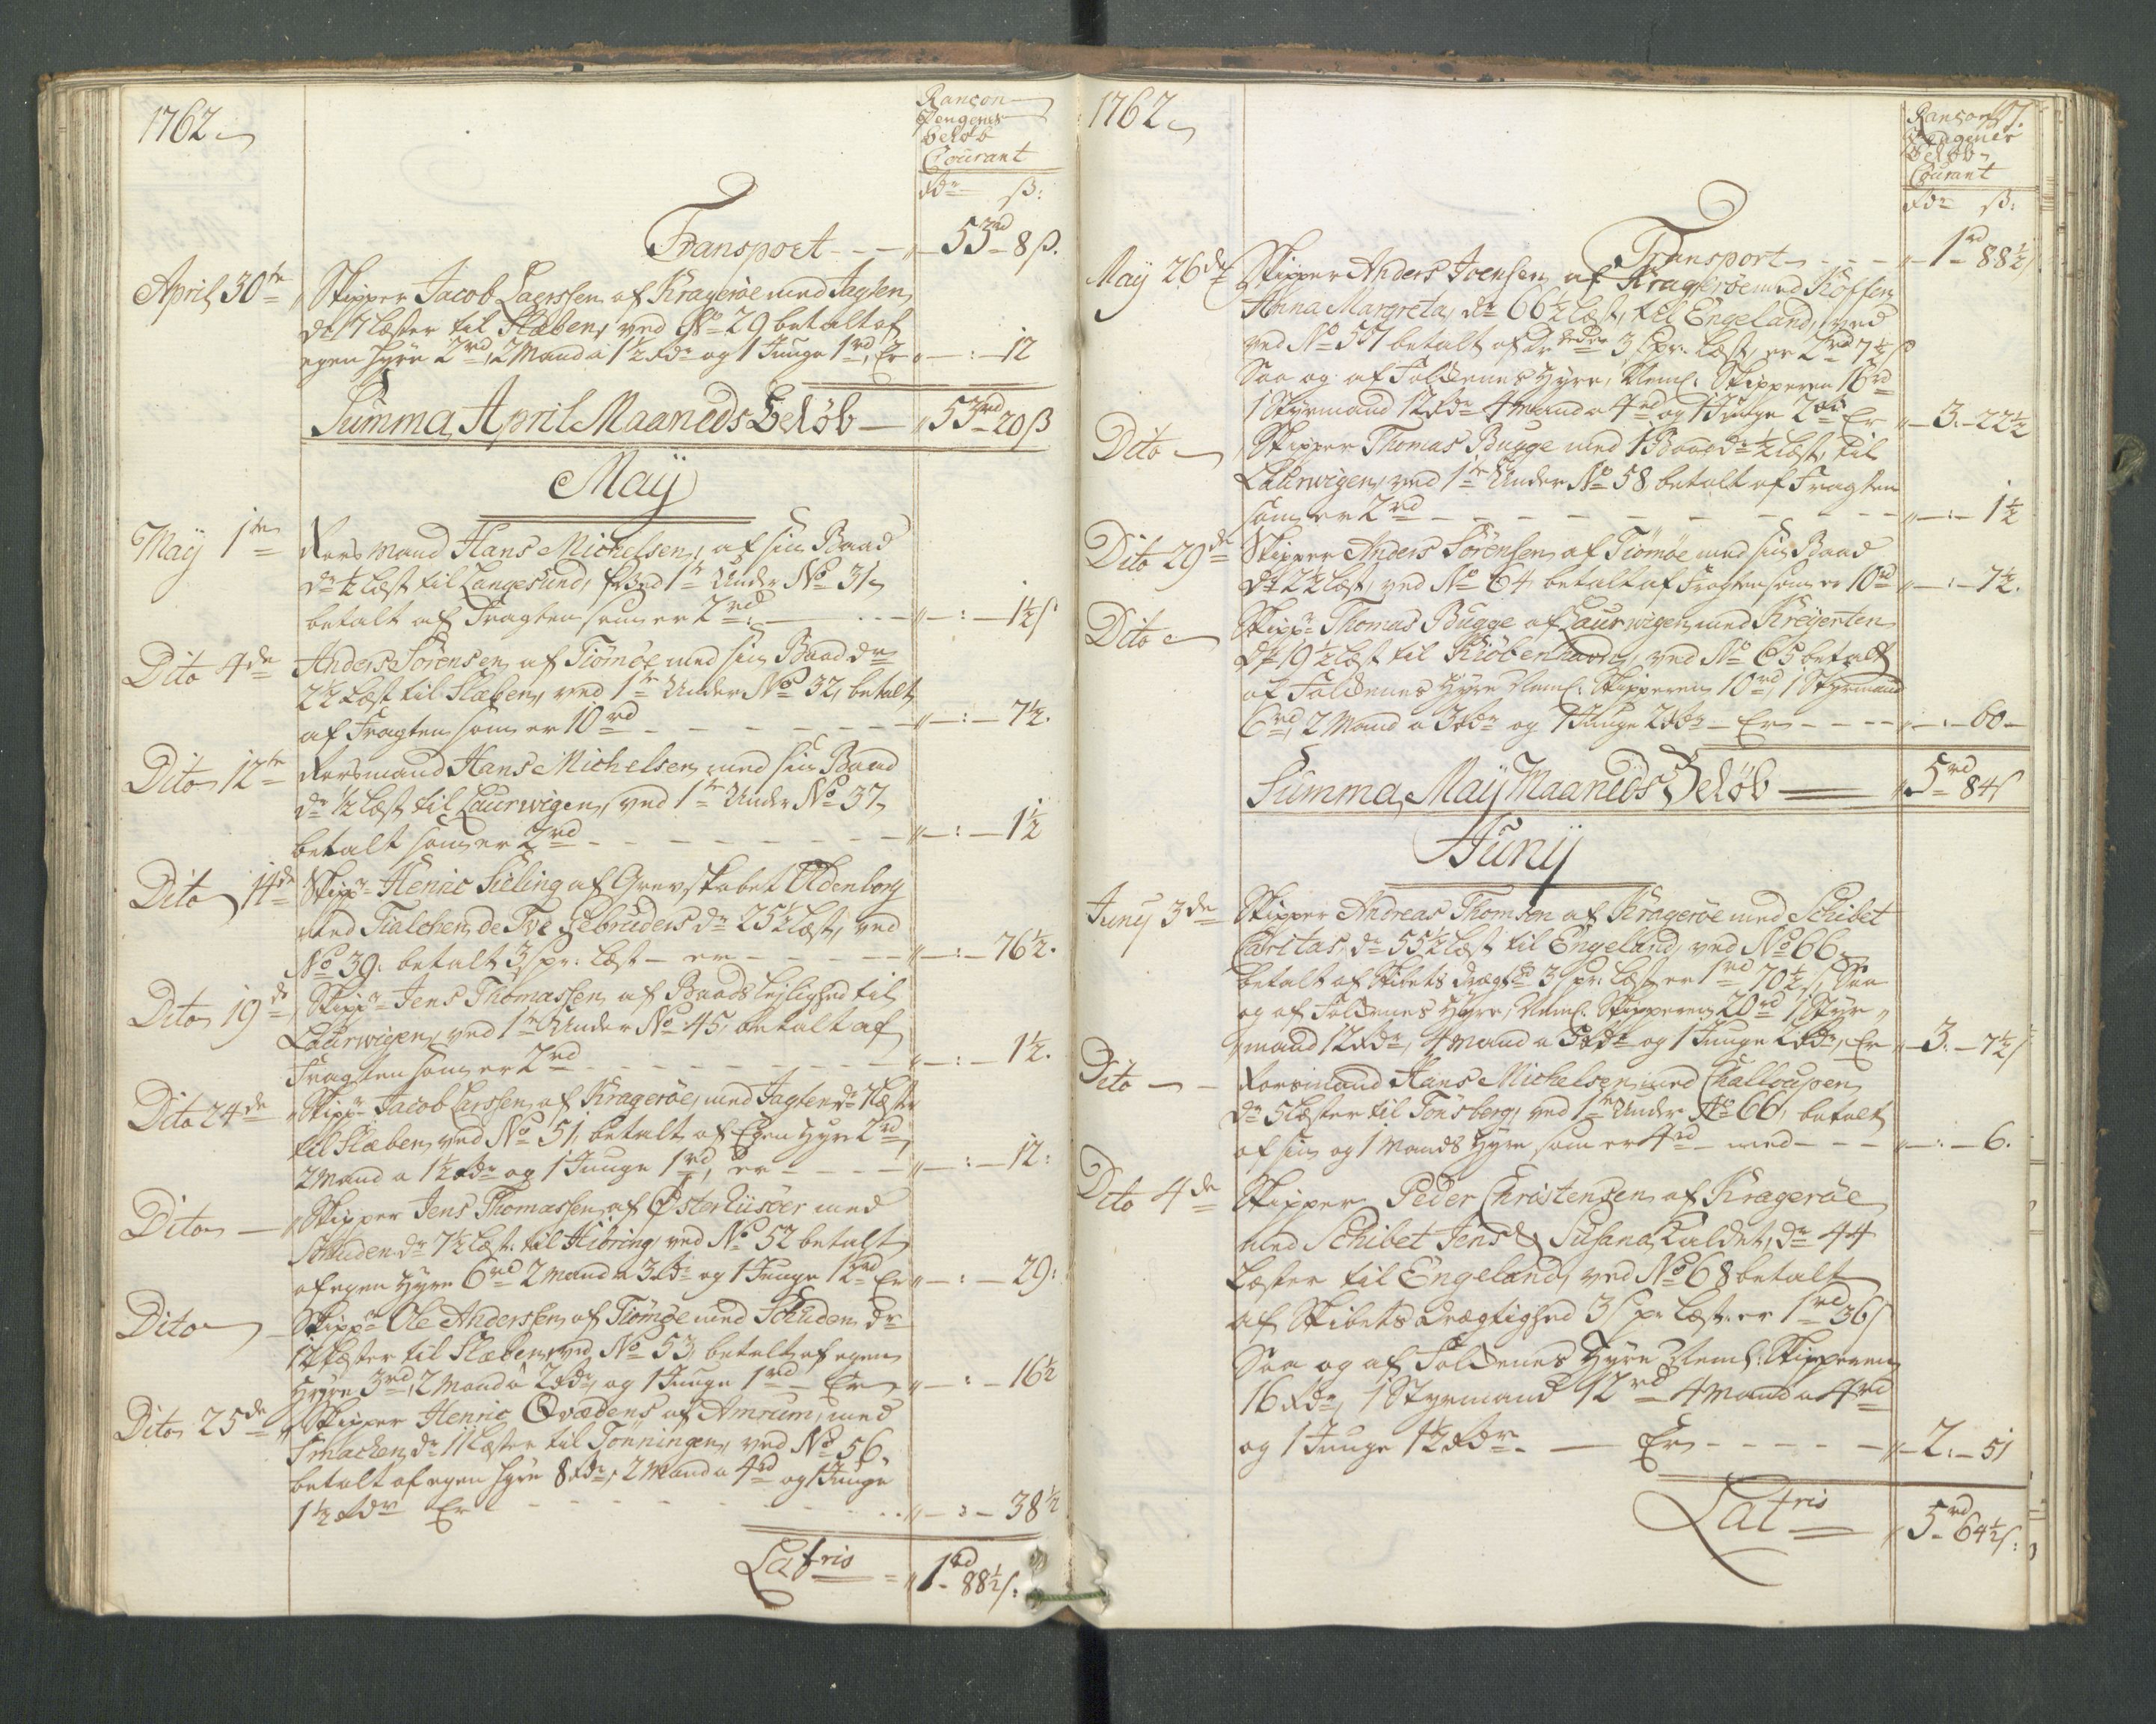 1762
Rancon
Pengenes
Beløb
Courant
Rdr ß:
Transport - - - 53rd 8ß.
April 30te Skipper Jacob Larssen af Krageröe med Jagten
dr 7 læster til Slæben, ved No 29 betalt af
egen hyre 2rd, 2 Mand a 1½ Rdr og 1 Junge 1rd, Er " - : - 12
Summa April Maaneds Beløb - " 53rd 20ß
Maÿ
Maÿ 1te Rorsmand Hans Michelsen, af sin Baad
dr ½ Læst til Langesund, ved 1te Under No 31
betalt af Fragten som er 2rd: - " - : - 1½ß
Dito 4de Anders Sörensen af Tiömöe med sin Baad dr
2½ Læst til Slæben, ved 1te Under No 32, betalt
af Fragten som er 10rd - - - - - " - : - 7½.
Dito 12te Rorsmand Hans Michelsen med sin Baad
dr ½ Læst til Laurwigen, ved 1te Under No 37
betalt som er 2rd - - - - - " - : - 1½
Dito 14de Skippr Henric Sieling af Grevskabet Oldenborg
med Tialchen de Tve Gebruders dr 25½ Læst, ved
No 39: betalt 3ß pr: Læst - er - - - - " - : - 76½.
Dito 19de Skippr Jens Thomassen af Baads lejlighed til
Laurwigen, ved 1te Under No 45, betalt af
Fragten som er 2rd - - - - - " - : - 1½.
Dito 24de Skippr Jacob Larssen af Krageröe, med Jagten dr 7 Læster
til Slæben, ved No 51, betalt af Egen Hyre 2rd
2 Mand a 1½ Rdr og 1 Junge 1rd, er - - - - " - : - 12:
Dito - Skipper Jens Thomassen af Østerriisöer med
Schuden dr 7½ Læst. til Hibring ved No 52 betalt
af egen Hyre 6rd 2 Mand a 3 Rdr og 1 Junge 1½rd Er " - : - 29:
Dito Skippr Ole Anderssen af Tiömöe med Schuden dr
12 Læster til Slæben, ved No 53, betalt af egen
Hyre 3rd, 2 Mand a 2 Rdr og 1 Junge 1rd Er " - : - 16½
Dito 25de Skipper Henric Qvædens af Amrum, med
Smacken dr 11 Læster til Tönningen, ved No 56.
betalt af egen hyre 8 Rdr, 2 Mand a 4rd og 1 Junge
1½ Rdr Er - - - - - " - : - 38½
Latris = " 1rd 88½ß:
1762
Rancon
Pengenes
Beløb
Courant
Rdr ß:
Transport - - - - " 1rd 88½ß
Maÿ 26de Skipper Anders Joensen af Krageröe med Koffen
Anna Margreta, dr 66½ Læst, til Engeland, ved
ved No 557 betalt af 3ß pr. Læst, er 2rd 7½ß
Saa og af Folckenes Hyre, Neml: Skipperen 16rd
1 Styrmand 12 Rdr 4 Mand a 4rd og 1 Junge 2rd Er " - 3. - 22½
Dito Skipper Thomas Bugge med 1 Baad dr ½ Læst, til
Laurwigen, ved 1te Under No 58 betalt af Fragten
som er 2rd - - - - - " - : - 1½
Dito 29de Skipper Anders Sörensen af Tiömöe med sin Baad
dr 2½ Læst, ved No 64 betalt af Fragten som er 10rd " - : - 7½.
Dito Skippr Thomas Bugge af Laurwigen, med Kreÿerten
dr 19½ Læst til Kiöbenhavn, ved No 65 betalt
af Folckenes Hyre Neml: Skipperen 10rd, 1 Styrmand
6rd, 2 Mand a 3 Rdr og 1 Junge 2 Rdr - Er - - - - " - : - 60 -
Summa Maÿ Maaneds Beløb - " 5rd 84ß
Junÿ
Junÿ 3de Skipper Andreas Thomson af Krageröe med Schibet
Caritas, dr 55½ Læst til Engeland, ved No 66
betalt af Skibets drægtd 3ß pr: Læst er 1rd 70½ß, Saa
og af Folckenes Hyre, Neml: Skipperen 20rd 1 Styr-
mand 12 Rdr, 4 Mand a 5 Rdr og 1 Junge 2 Rdr, Er " - 3. - 7½ß
Dito - - Rorsmand Hans Michelsen med Challoupen
dr 5 Læster til Tönsberg, ved 1te Under No 66, betalt
af sin og 1 Mands Hyre som er 4rd - med - - - " - : - 6.
Dito 4de Skipper Peder Christensen af Krageröe
med Schibet Jens & Susana Kaldet, dr 44
Læster til Engeland, ved No 68 betalt
af Skibets Drægtighed 3ß pr Læst er 1rd 36ß
Saa og af Folckenes Hyre Neml: Skipperen
16 Rdr, 1 Styrmand 12rd 4 Mand a 4rd
og 1 Junge 1½ Rdr. - Er - - - - - " - 2: - 51
Latris " 5rd 64½ß: